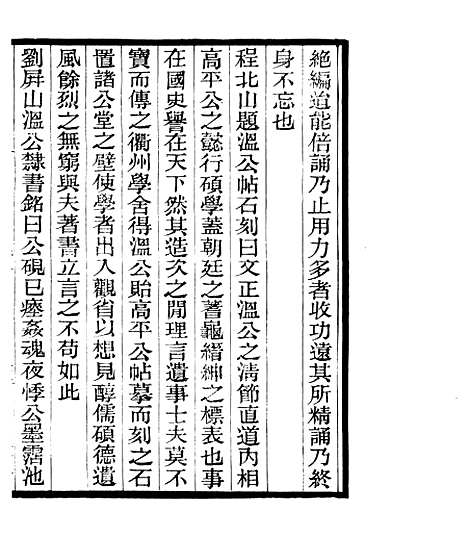 絶編迨能倍誦乃止用力多者收功遠其所精誦乃終
身不忘也
程北山題溫公帖石刻曰文正溫公之淸節直道內相
高平公之懿行碩學蓋朝廷之蓍龜縉紳之標表也事
在國史譽在天下然其造次之閒理言遺事士夫莫不
寶而傳之衢州學舍得溫公貽高平公帖摹而刻之石
置諸公堂之壁使學者出入觀省以想見醇儒碩德遺
風餘烈之無窮與夫著書立言之不苟如此
劉屏山溫公隸書銘曰公硯已瘗姦魂夜悸公墨霑池